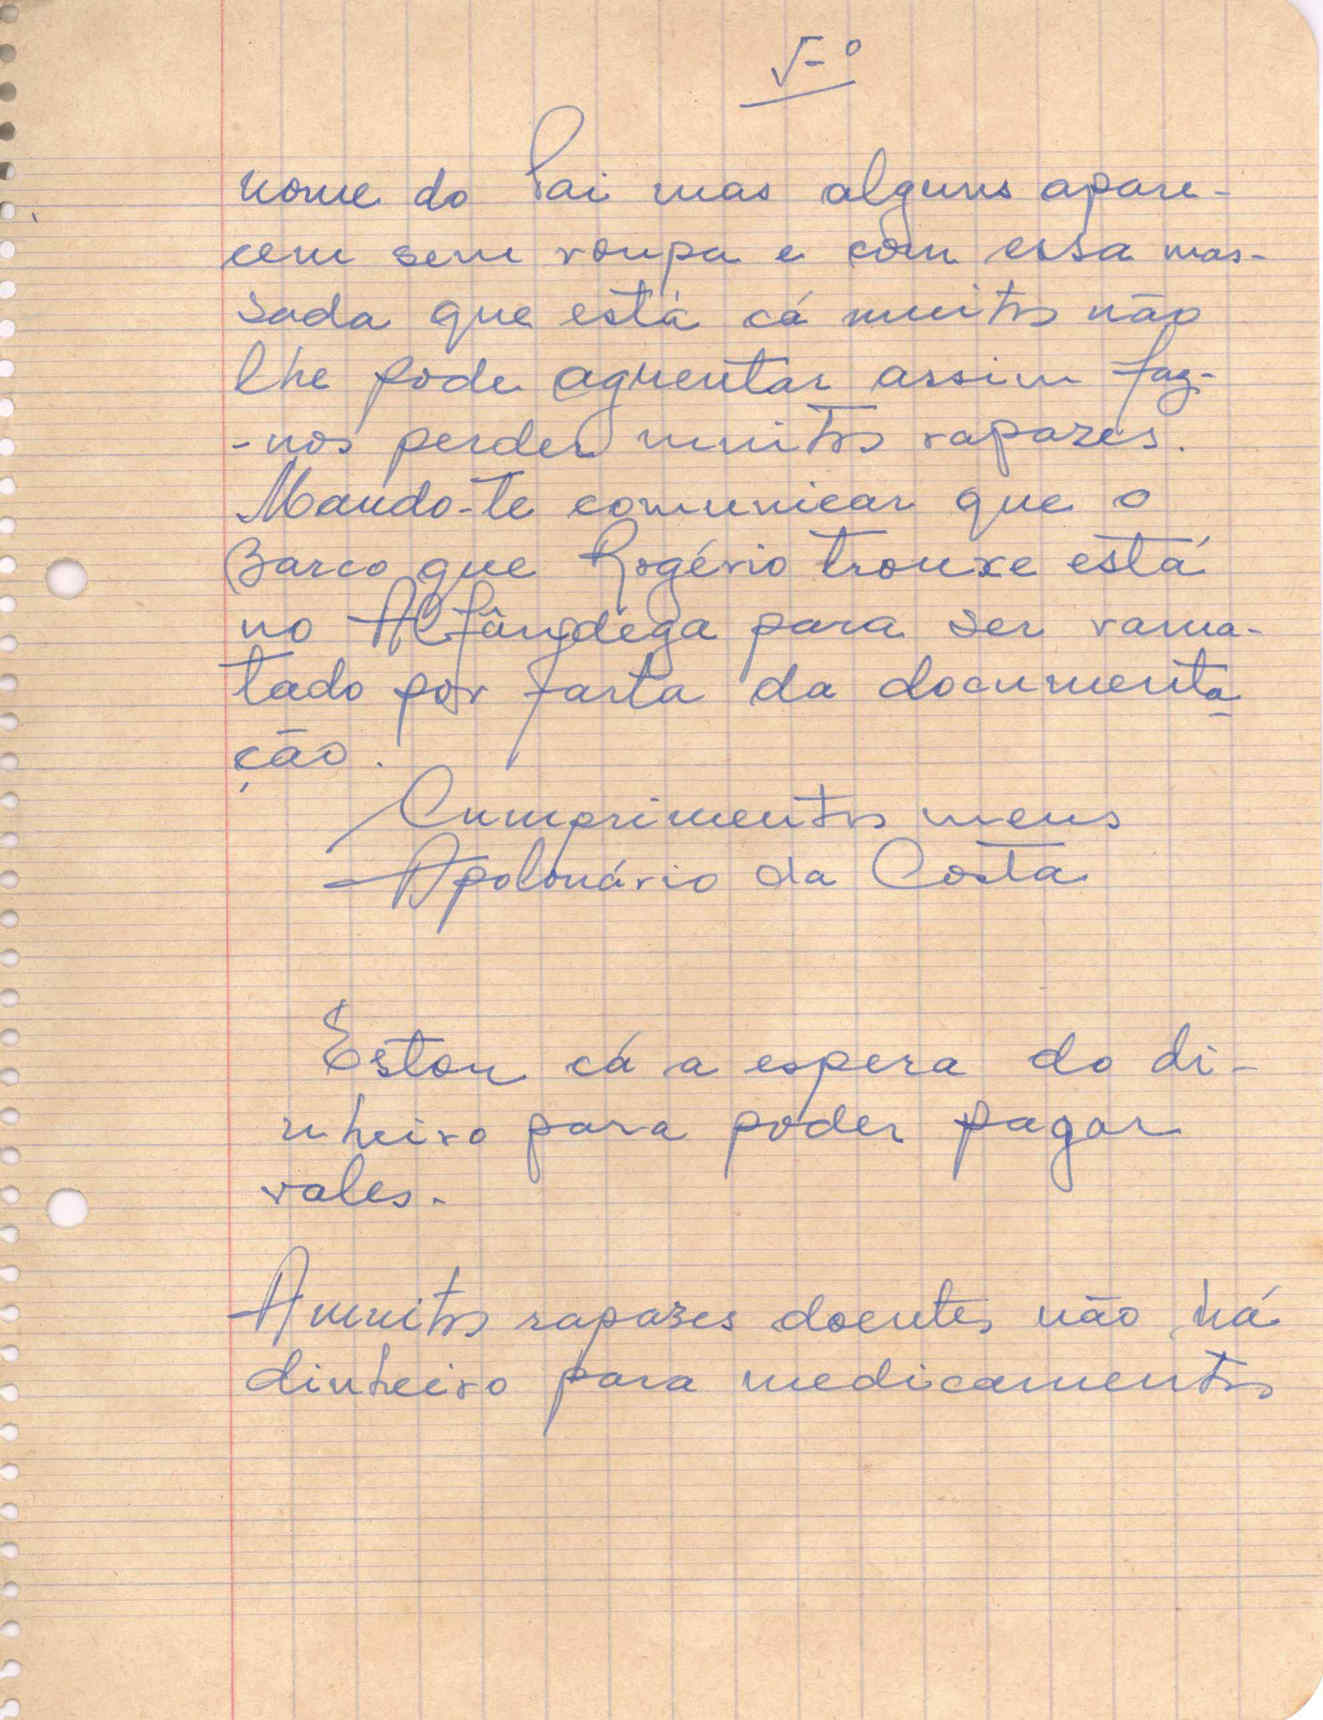 5-º
nome do Pai mas alguns apare-
cem sem roupa e com essa mas-
sada que está cá muitos não
lhe pode aguentar assim faz-
-nos perder muitos rapazes.
Mando-te comunicar que o
Barco que Rogério trouxe está
no Alfândega para ser rama-
tado por farta da documenta
ção.
Cumprimentos meus
Apolonário da Costa
Estou cá a espera do di-
nheiro para poder pagar
vales.
A muitos rapazes doentes não há
dinheiro para medicamentos